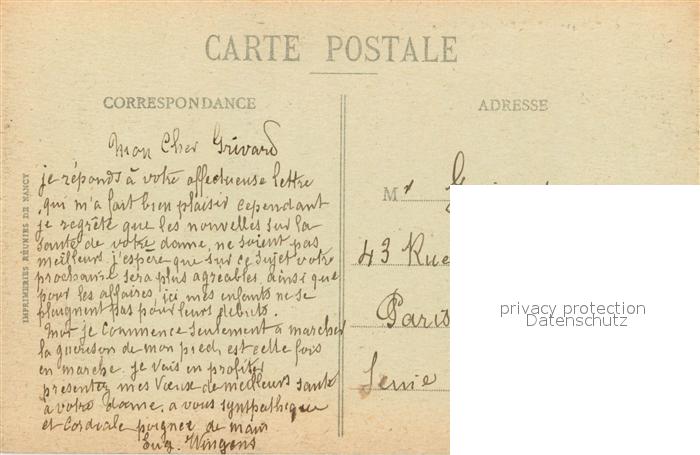 CARTE POSTALE
CORRESPONDANCE
ADRESSE
IMPRIMERIES RÉUNIES DE NANCY
Mon Cher Grivard
je réponds à votre affectueuse lettre
qui m'a fait bien plaisir cependant
je regrête que les nouvelles sur la
santé de votre dame, ne soient pas
meilleurs, j'espère que sur ce sujet votre
prochaine sera plus agréables, ainsi que
pour les affaires, ici mes enfants ne se
plaignent pas pour leurs débuts.
Moi je commence seulement a marcher
la guérison de mon pied, est cette fois
en marche. je vais en profiter
présentez mes Vœux de meilleurs santé
a votre dame. a vous sympathique
et Cordiale poignée de main
Eug. Wingens
Mr
43 Rue
Paris
Seine
privacy protection
Datenschutz